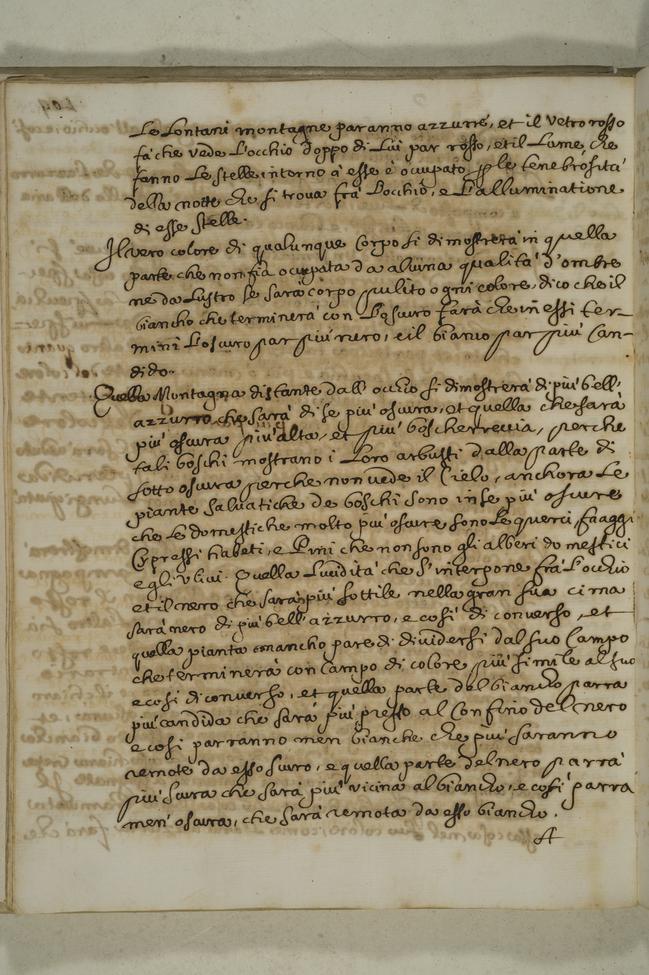 Le Lontani montagne paranno azzurre, et il vetro rosso
fà che vede L'occhio doppo di Lui par rosso, et il Lume, che
fanno Le stelle intorno à esse è ocupato p le tenebrosità
della notte che si trova frà L'occhio, e L'alluminatione
di esse stelle.
Il vero colore di qualunque Corpo si dimostrerà in quella
parte che non sia ocupata da alcuna qualità d'ombre
ne da Lustro se sarà corpo pulito ogni colore, dico che il
biancho che terminerà con L'oscuro farà che in essi ter-
mini L'oscuro par più nero, e il bianco par più Can-
dido.
Quella Montagna distante dall'occhio si dimostrerà di più bell'
azzurro che sarà di se più oscura, et quella che sarà
più oscura più alta, et più boschereccia, perche
tali boschi mostrano i Loro arbusti dalla parte di
sotto oscura perche non vede il Cielo, anchora Le
piante salvatiche de boschi sono in se più oscure
che le domestiche molto più oscure sono Le querci, faaggi
Cipressi habeti, e Pini che non sono gli alberi domestici
e gl'ulivi. Quella Lucidità che s'interpone frà L'occhio
et il nero che sarà più sottile nella gran sua cima
sarà nero di più bell'azzurro, e cosi di converso, et
quella pianta mancho pare di dividersi dal suo Campo
che terminerà con Campo di colore più simile al suo
e cosi di converso, et quella parte del biancho parra
più candida che sarà più presso al Confino del nero
e cosi parranno men bianche che più saranno
remote da esso scuro, e quella parte del nero parrà
più scura che sarà più vicina al biancho, e cosi parra
men' oscura, che sarà remota da esso biancho.
A